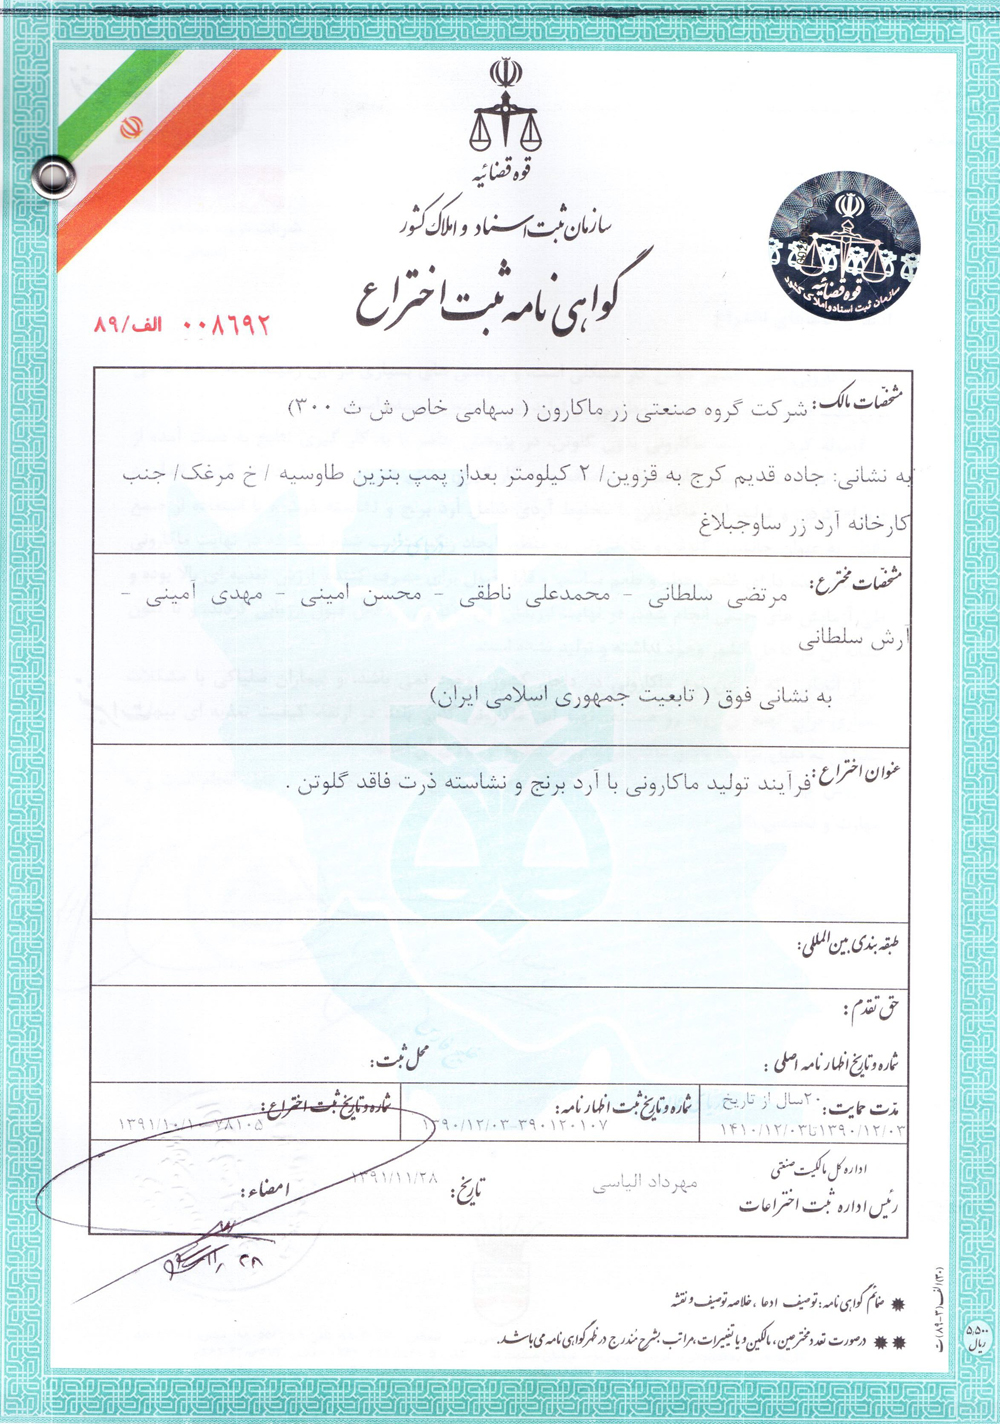 قوه قضائیه
سازمان ثبت اسناد و املاک کشور
گواهی نامه ثبت اختراع
۰۰۸۶۹۲ الف/۸۹
قوه قضائیه
سازمان ثبت اسناد و املاک کشور
مشخصات مالک: شرکت گروه صنعتی زر ماکارون ( سهامی خاص ش ث ۳۰۰)
به نشانی: جاده قدیم کرج به قزوین/ ۲ کیلومتر بعداز پمپ بنزین طاوسیه / خ مرغک/ جنب
کارخانه آرد زر ساوجبلاغ
مشخصات مخترع: مرتضی سلطانی - محمدعلی ناطقی - محسن امینی - مهدی امینی -
آرش سلطانی
به نشانی فوق ( تابعیت جمهوری اسلامی ایران)
عنوان اختراع: فرآیند تولید ماکارونی با آرد برنج و نشاسته ذرت فاقد گلوتن .
طبقه بندی بین المللی:
حق تقدم:
شماره و تاریخ اظهار نامه اصلی: محل ثبت:
مدت حمایت: ۲۰سال از تاریخ
۱۳۹۰/۱۲/۰۳تا۱۴۱۰/۱۲/۰۳
شماره و تاریخ ثبت اظهار نامه:
۱۳۹۰/۱۲/۰۳-۳۹۰۱۲۰۱۰۷
شماره و تاریخ ثبت اختراع:
۱۳۹۱/۱۰/۱۰-۷۸۱۰۵
اداره کل مالکیت صنعتی
رئیس اداره ثبت اختراعات مهرداد الیاسی تاریخ: ۱۳۹۱/۱۱/۲۸ امضاء:
ضمائم گواهی نامه: توصیف ادعا، خلاصه توصیف و نقشه
در صورت تعدد مخترعین، مالکین و یا تغییرات، مراتب بشرح مندرج در ظهر گواهی نامه می باشد.
(۳۰)الف(۳-۸۹)ث
۵٫۵۰۰ ریال